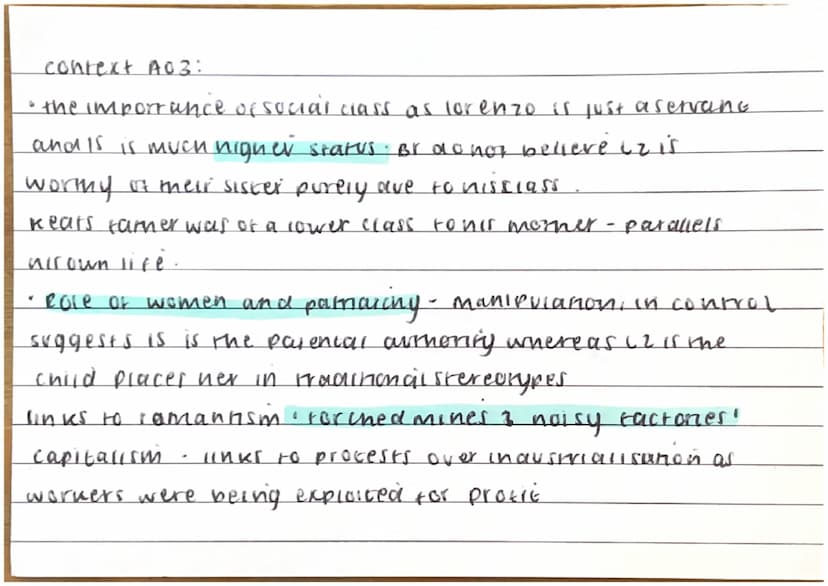 context A03:
· the importance of social class as lorenzo is just a servant
and IS is much higher status. Br do not believe LZ is
worthy of their sister purely due to his class.
Keats father was of a lower class to his mother - parallels
his own life.
· Role of women and patriarchy - manipulation, in control
suggests IS is the parental authority whereas LZ is the
child places her in traditional stereotypes
links to romantism 'torched mines & noisy factories'
capitalism · links to protests over industrialisation as
workers were being exploited for profit